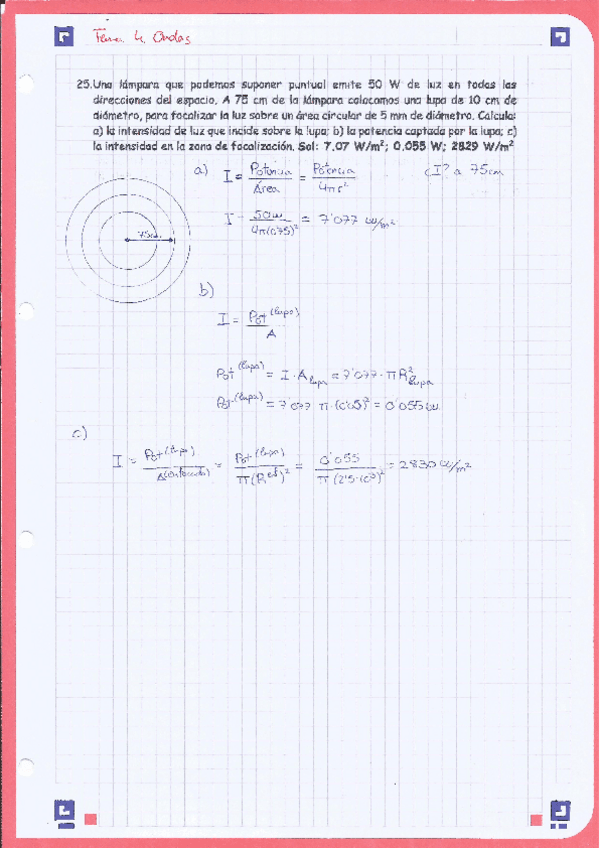 Tema 4. Ondas
25. Una lámpara que podemos suponer puntual emite 50 W de luz en todas las
direcciones del espacio. A 75 cm de la lámpara colocamos una lupa de 10 cm de
diámetro, para focalizar la luz sobre un área circular de 5 mm de diámetro. Calcula:
a) la intensidad de luz que incide sobre la lupa; b) la potencia captada por la lupa; c)
la intensidad en la zona de focalización. Sol: 7.07 W/m²; 0.055 W; 2829 W/m²
a) I = Potencia/Área = Potencia/4πr² ¿I? a 75cm
I = 50w/4π(0'75)² = 7'077 w/m²
75cm
b)
I = Pot (lupa)/A
Pot (lupa) = I · A lupa = 7'077 · πR² lupa
Pot (lupa) = 7'077 π·(0'05)² = 0'055 w
c)
I = Pot (lupa)/A(enfocada) = Pot (lupa)/π(R enf)² = 0'055/π(2'5·10⁻³)² = 2830 w/m²